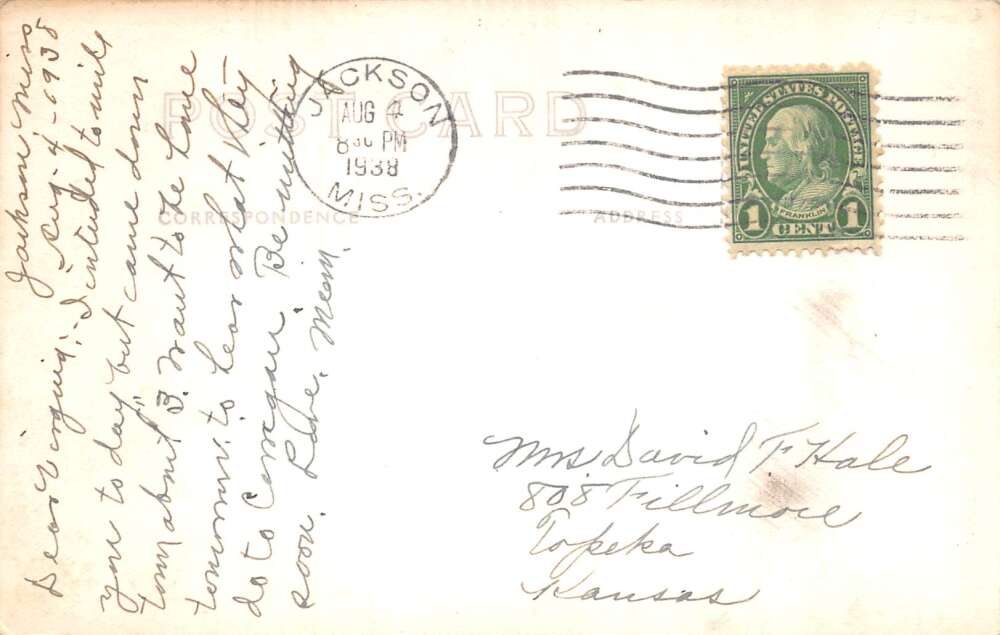 POST CARD
CORRESPONDENCE
ADDRESS
JACKSON
AUG 4
8 30 PM
1938
MISS.
UNITED STATES POSTAGE
FRANKLIN
1 CENT 1
Jackson Miss
Aug. 4 - 1938
Dear Virginia:- I intended to write
you to day but came down
town about 3. Want to be home
tomorrow to hear what they
do to Corrigan. Be writing
soon. Love. Mem.
Mrs. David F Hale
808 Fillmore
Topeka
Kansas